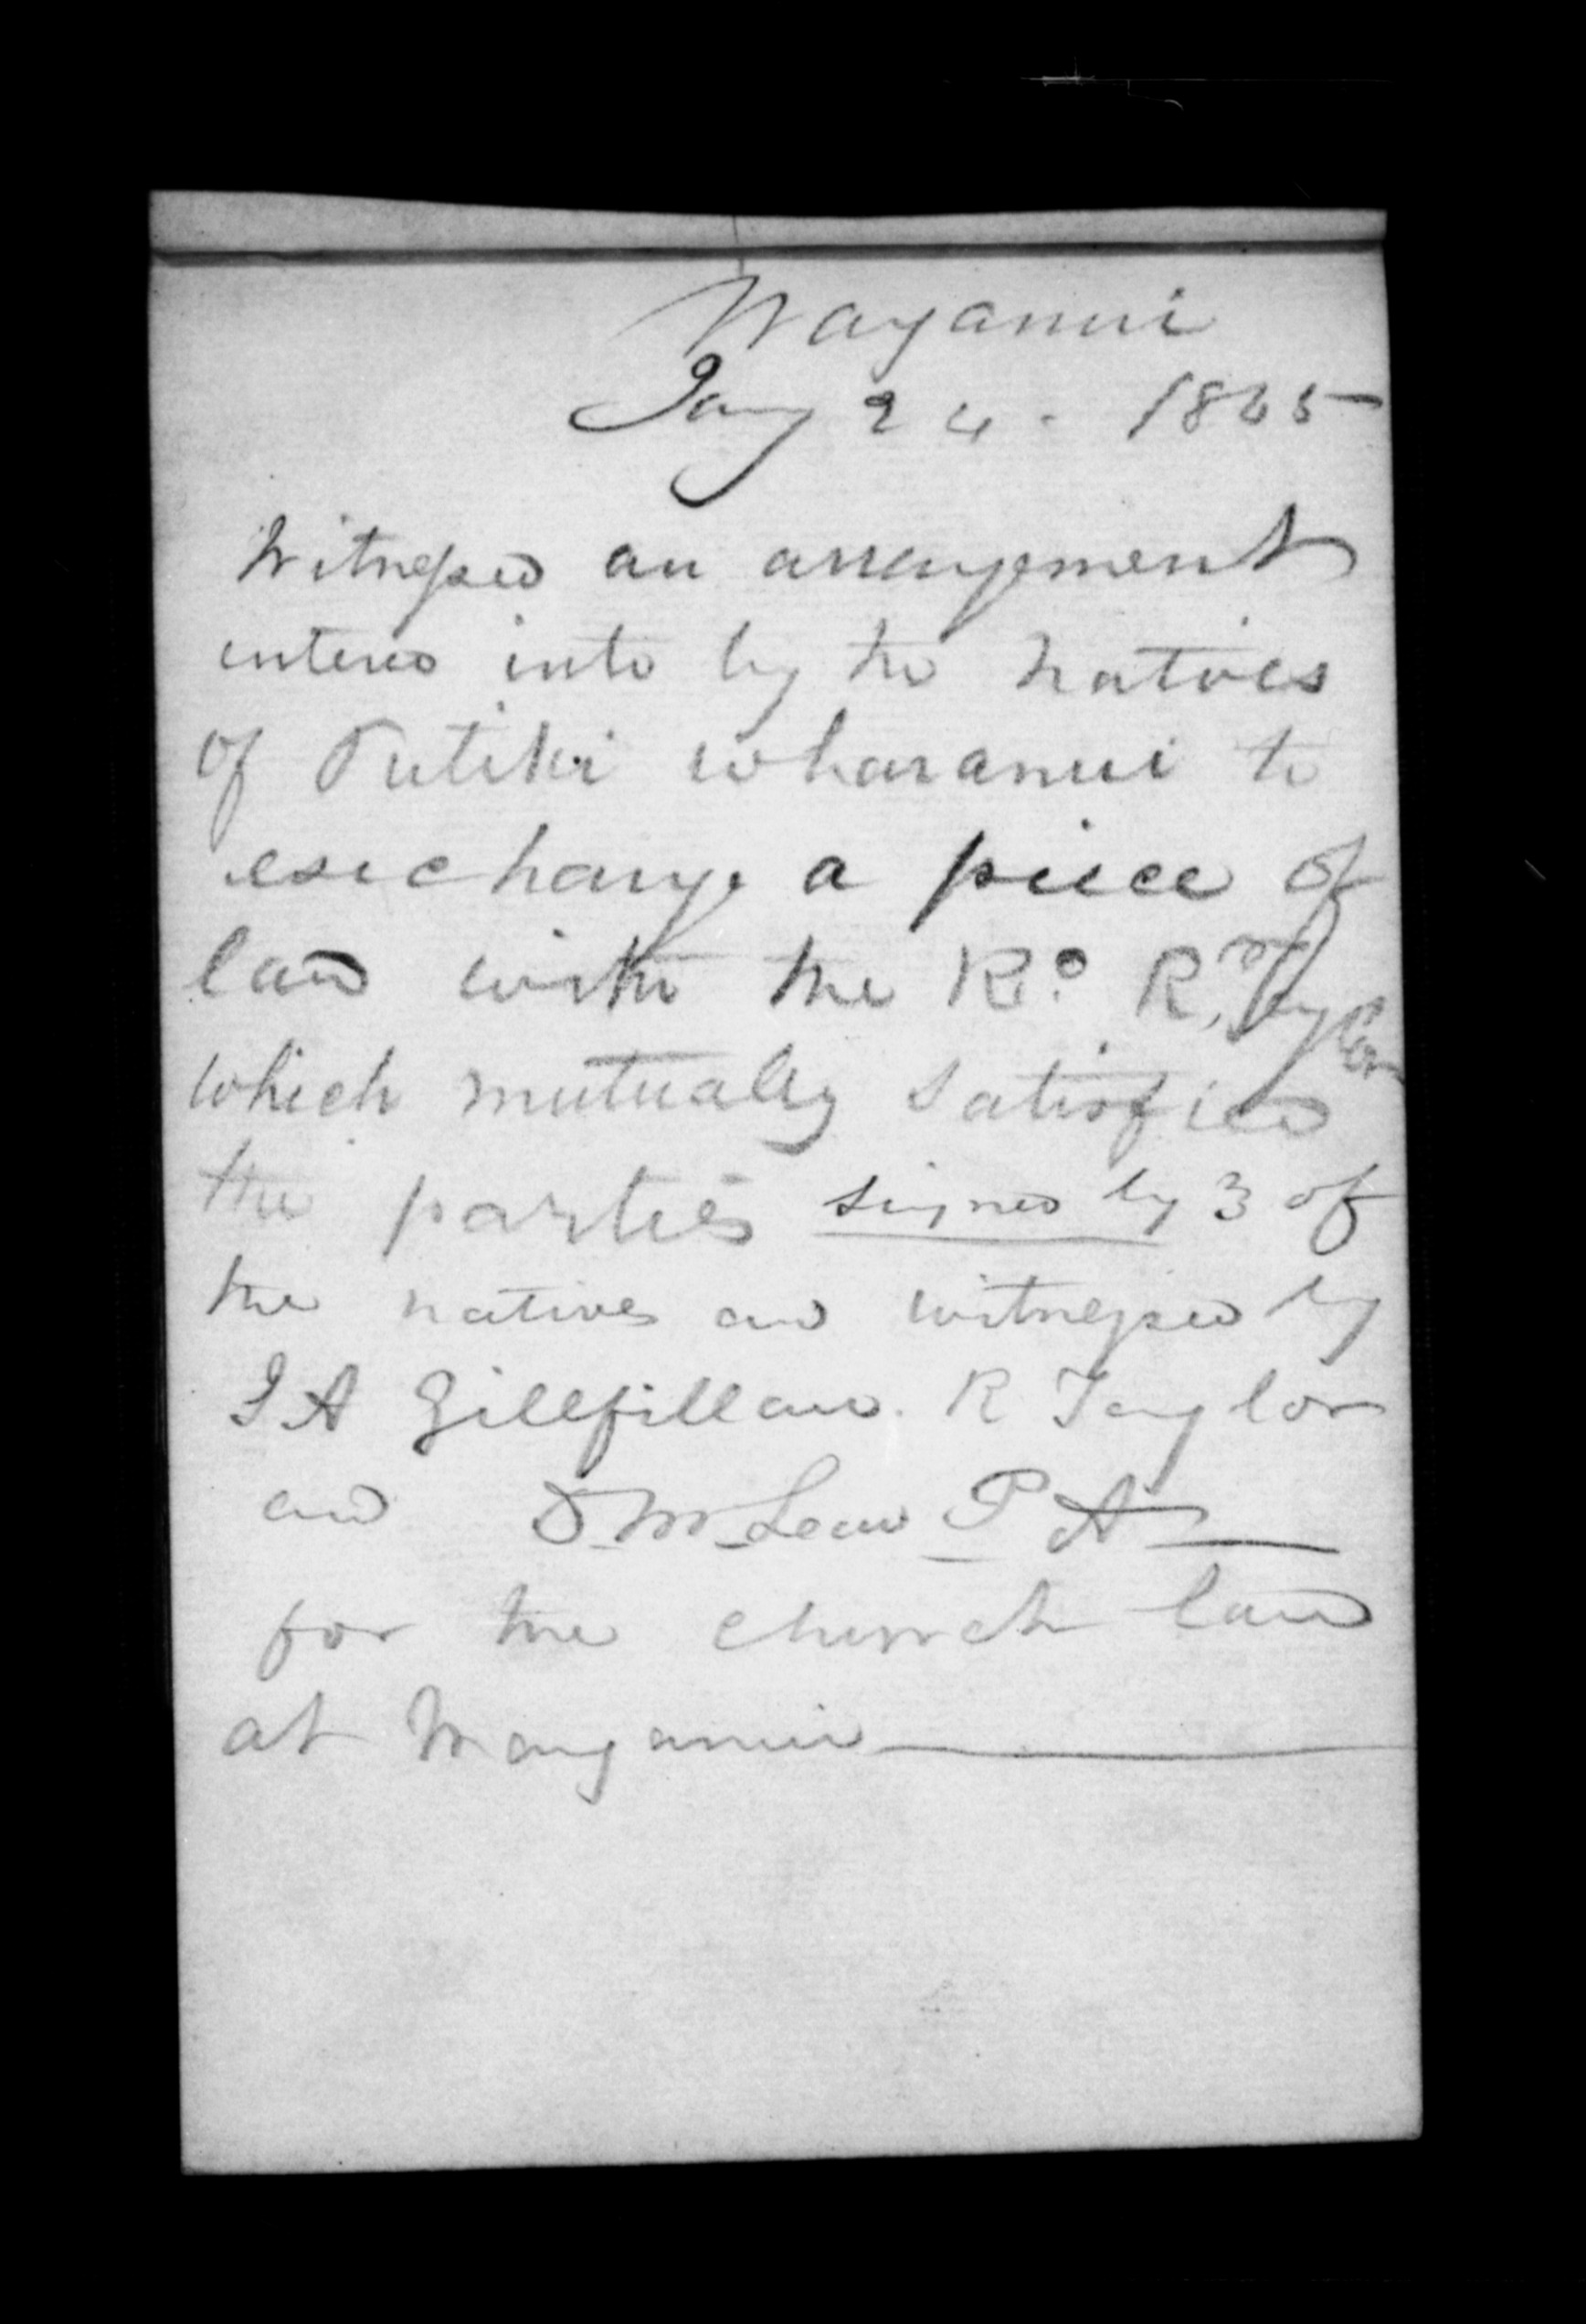 Wanganui
Jany 24. 1845
Witnessed an arrangement
entered into by the natives
of Putiki wharanui to
exchange a piece of
land with the Rd. R. Taylor
which mutually satisfied
the parties signed by 3 of
the natives and witnessed by
J A Gillfillan. R Taylor
and D. McLean P A
for the church land
at Wanganui